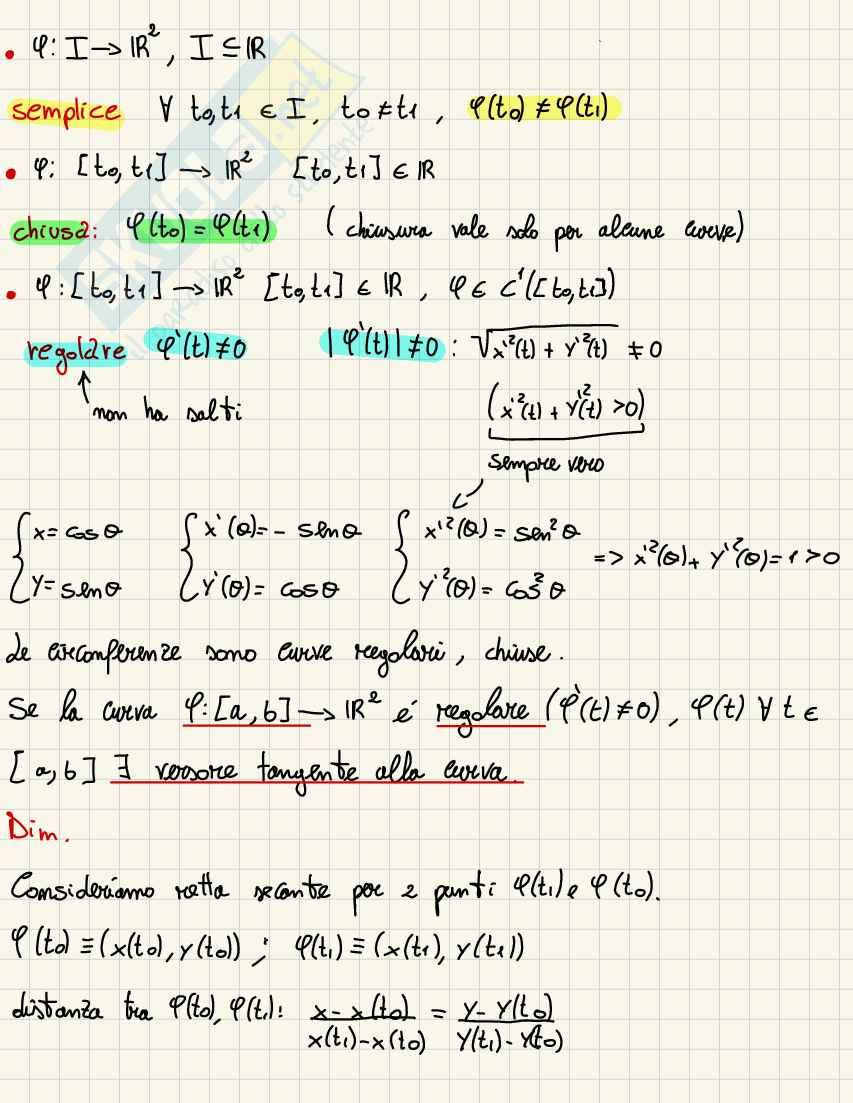 • φ: I → ℝ², I ⊆ ℝ
semplice ∀ t0,t1 ∈ I, t0 ≠ t1, φ(t0) ≠ φ(t1)
• φ: [t0, t1] → ℝ² [t0, t1] ∈ ℝ
chiusa: φ(t0) = φ(t1) (chiusura vale solo per alcune curve)
• φ: [t0, t1] → ℝ² [t0, t1] ∈ ℝ, φ ∈ C¹([t0, t1])
regolare φ'(t) ≠ 0 |φ'(t)| ≠ 0 : √x'²(t) + y'²(t) ≠ 0
non ha salti (x'²(t) + y'²(t) > 0)
sempre vero
{ x = cos θ { x'(θ) = - sen θ { x'²(θ) = sen² θ
=> x'²(θ) + y'²(θ) = 1 > 0
y = sen θ y'(θ) = cos θ y'²(θ) = cos² θ
Le circonferenze sono curve regolari, chiuse.
Se la curva φ: [a, b] → ℝ² é regolare (φ'(t) ≠ 0), φ(t) ∀ t ∈
[a, b] ∃ versore tangente alla curva.
Dim.
Consideriamo retta secante per 2 punti φ(t1) e φ(t0).
φ(t0) ≡ (x(t0), y(t0)) ; φ(t1) ≡ (x(t1), y(t1))
distanza tra φ(t0), φ(t1): x - x(t0) / x(t1) - x(t0) = y - y(t0) / y(t1) - y(t0)